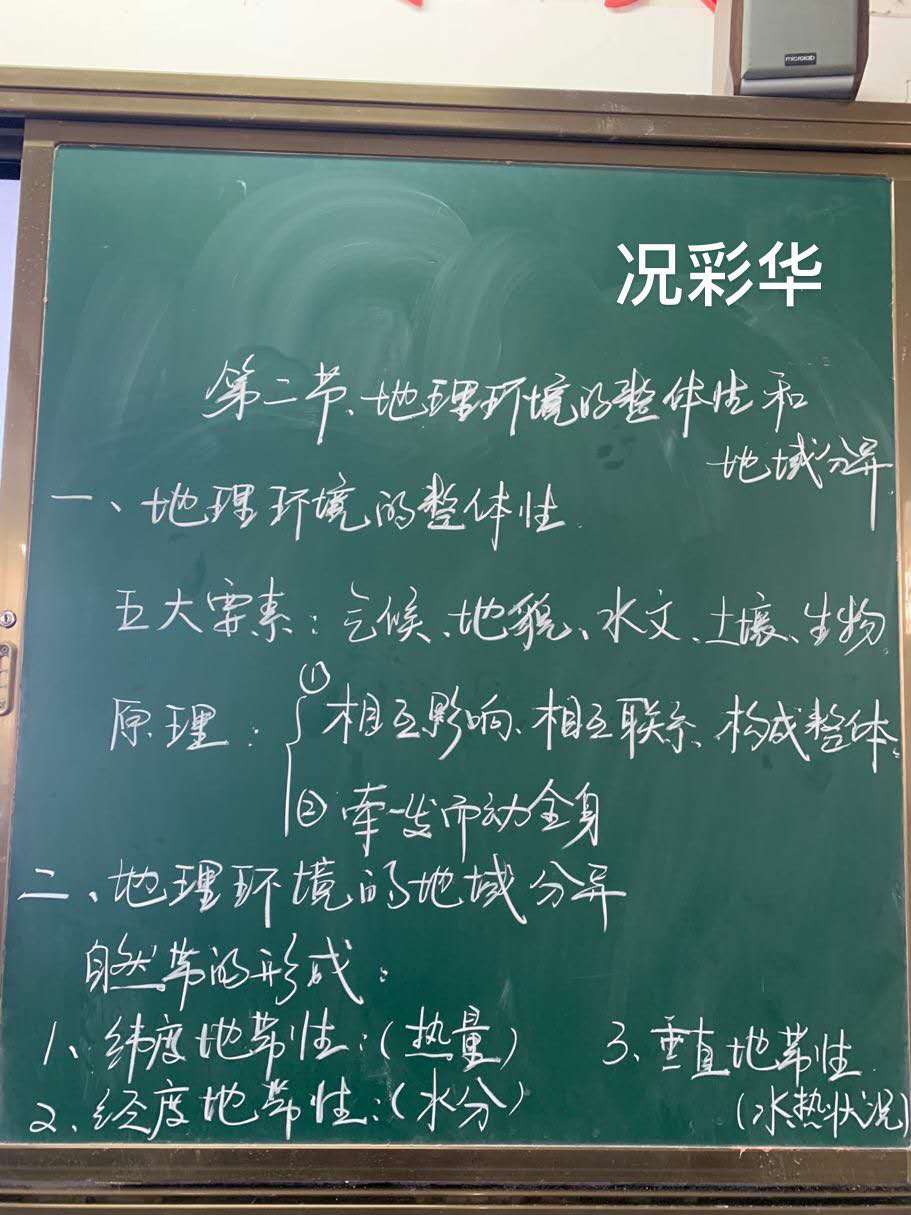 microlab
况彩华
第二节、地理环境的整体性和
地域分异
一、地理环境的整体性.
五大要素：气候、地貌、水文、土壤、生物.
原理：{①相互影响、相互联系、构成整体。
②牵一发而动全身
二、地理环境的地域分异
自然带的形成：
1、纬度地带性：(热量)
2、经度地带性：(水分)
3、垂直地带性
(水热状况)